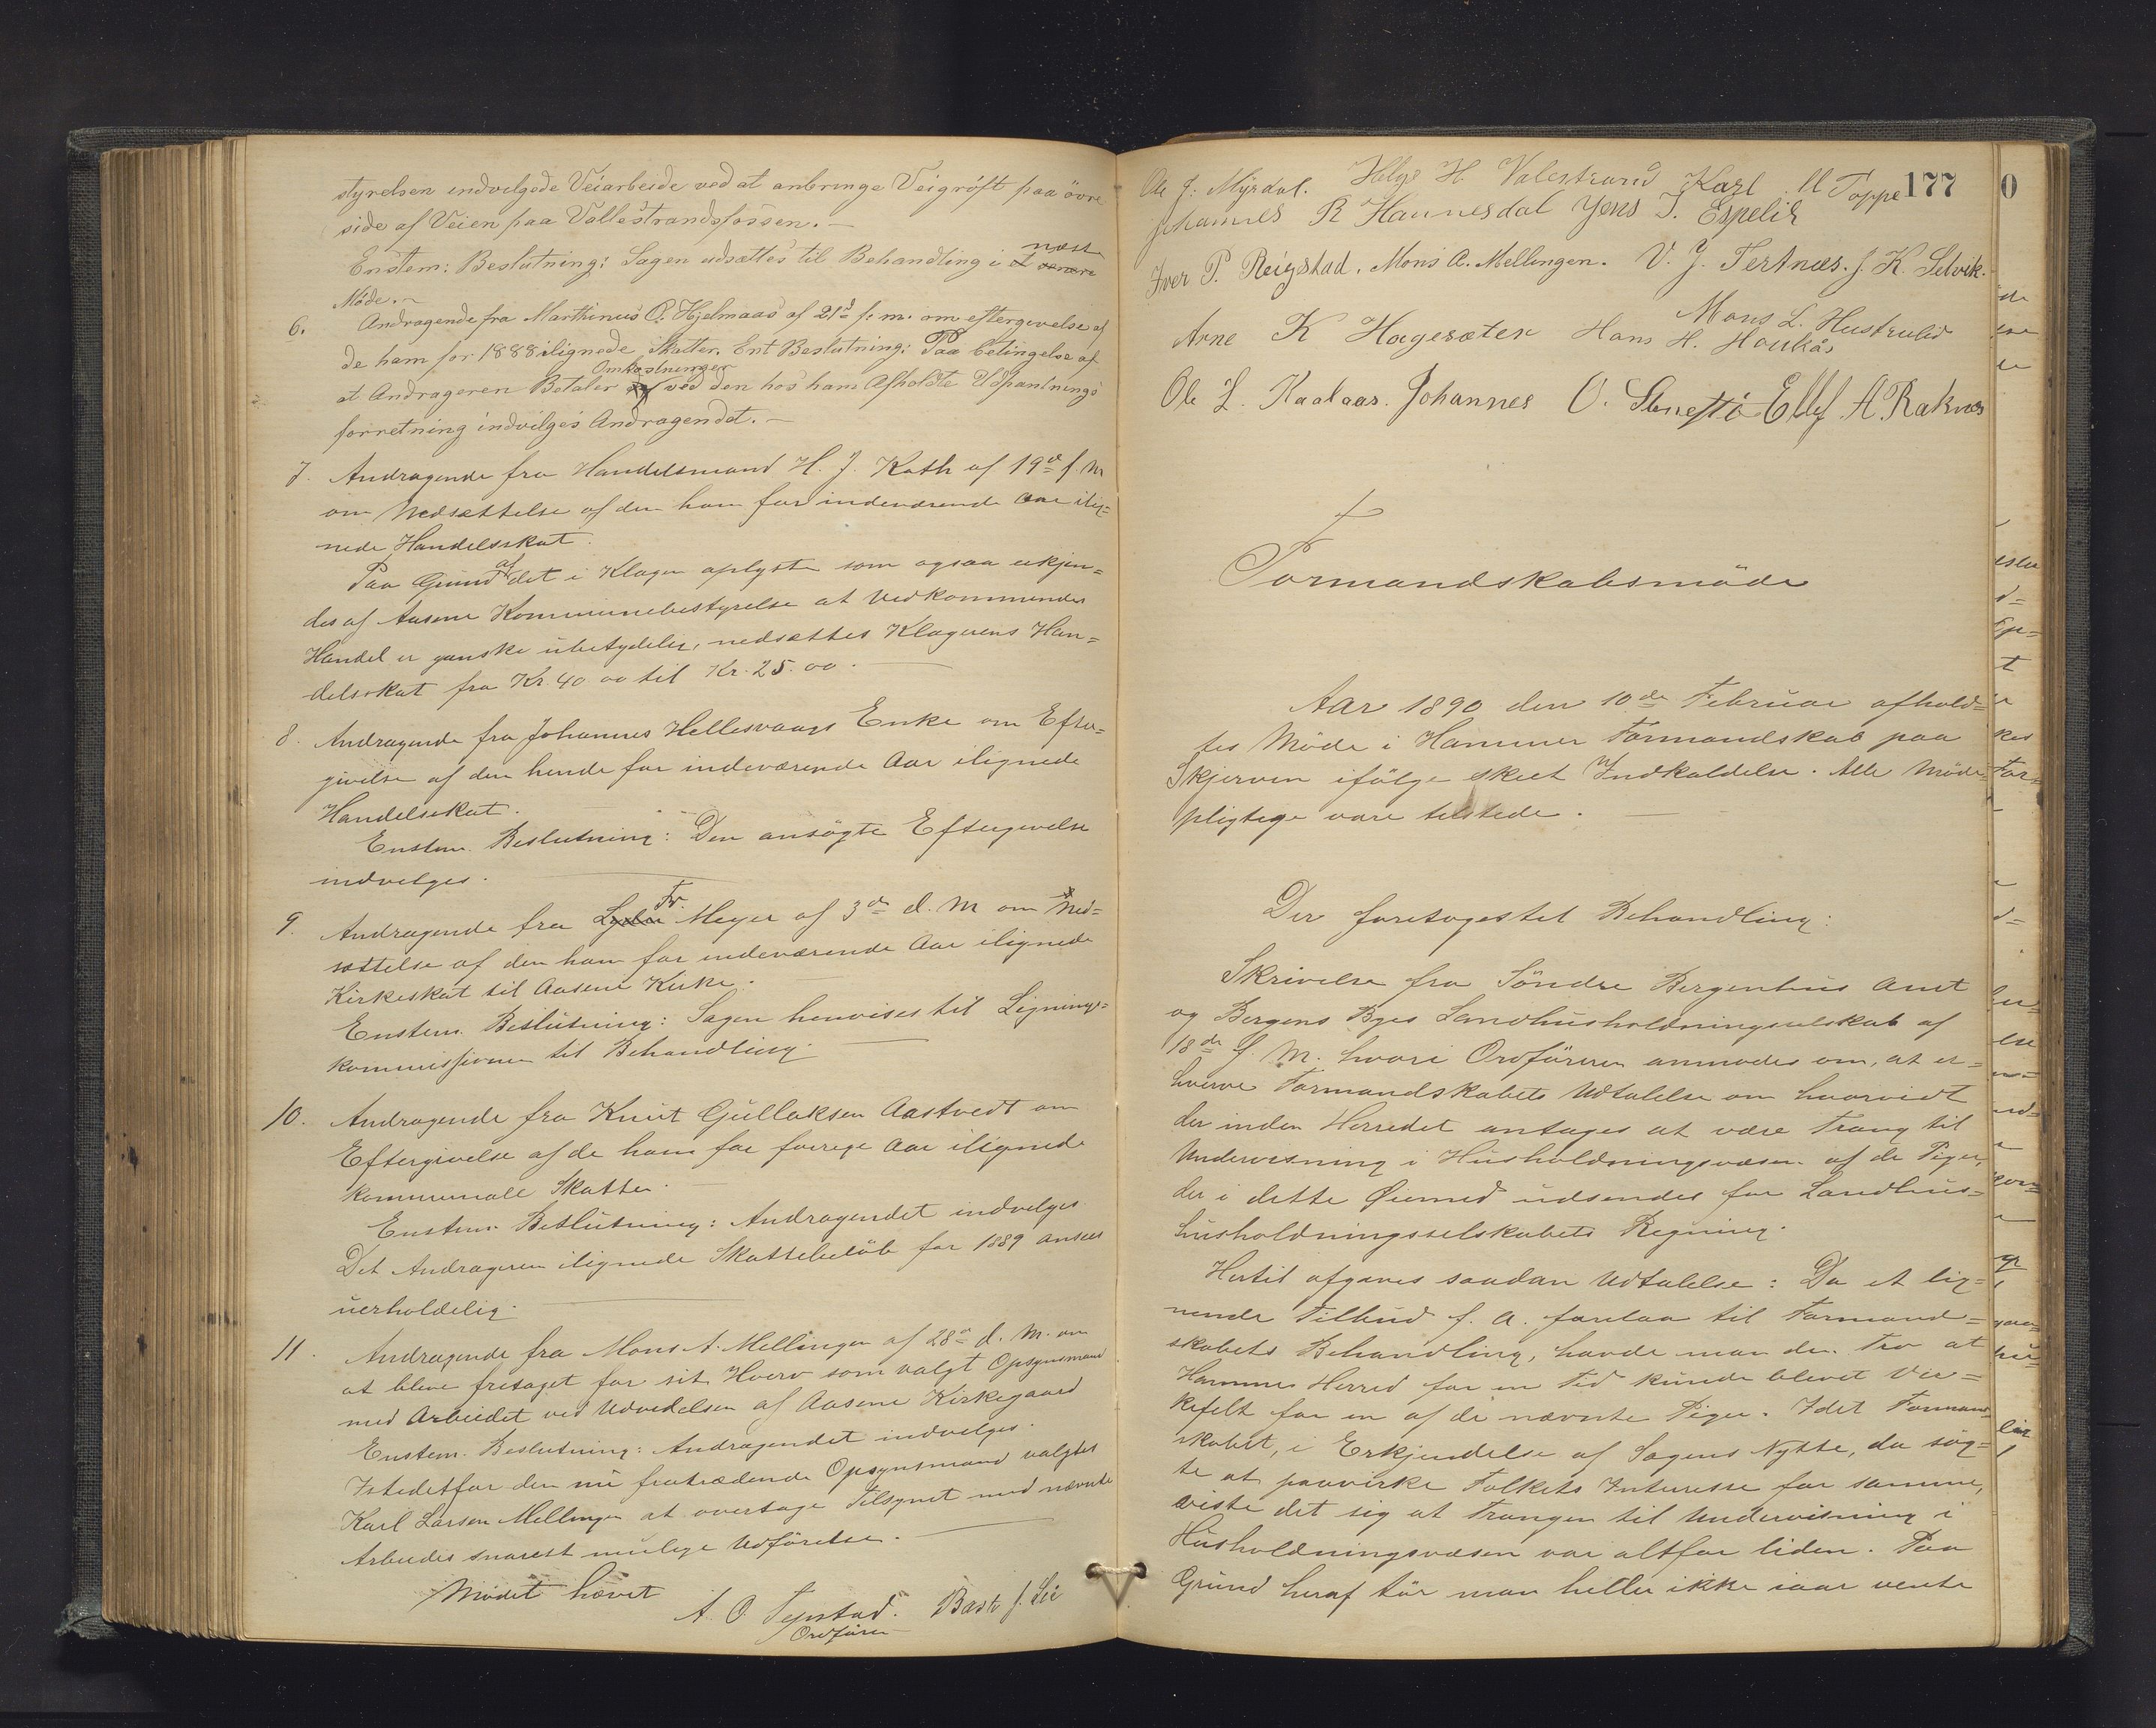 styrelsen indvilgede Veiarbeide ved at anbringe Veigröft paa övre
side af Veien paa Vallestrandsfossen.
Enstem: Beslutning: Sagen udsættes til Behandling i et senere næste
Möde.
6. Andragende fra Marthinus O. Hjelmaas af 21d f. m. om eftergivelse af
de ham for 1888 ilignede Skatter. Ent Beslutning: Paa betingelse af
at Andrageren Betaler Omkostninger ved den hos ham Afholdte Udpantnings
forretning indvilges Andragendet.
7. Andragende fra Handelsmand H. J. Kath af 19de f. M
om Nedsættelse af den ham for indeværende Aar ilig=
nede Handelsskat.
Paa Grund af det i Klagen oplyste som ogsaa erkjen=
des af Aasene Kommunebestyrelse at Vedkommendes
Handel er ganske ubetydelig, nedsættes Klagerens Han=
delsskat fra Kr. 40 00 til Kr. 25.00.
8. Andragende fra Johannes Hellesvaags Enke om Efter=
givelse af den hende for indeværende Aar ilignede
Handelsskat.
Enstem. Beslutning: Den ansögte Eftergivelse
indvilges.
9. Andragende fra Fr. Meyer af 3de d. M om Ned=
sættelse af den ham for indeværende Aar ilignede
Kirkeskat til Aasene Kirke.
Enstem. Beslutning: Sagen henvises til Lignings=
kommissionen til Behandling.
10. Andragende fra Knut Gullaksen Aastvedt om
Eftergivelse af de ham for forrige Aar ilignede
kommunale Skatter.
Enstem. Beslutning: Andragendet indvilges.
Det Andrageren ilignede Skattebelöb for 1889 ansees
uerholdelig.
11. Andragende fra Mons A. Mellingen af 28de d. M. om
at blive fritaget for sit Hverv som valgt Opsynsmand
med Arbeidet ved Udvidelsen af Aasene Kirkegaard
Enstem. Beslutning: Andragendet indvilges.
Istedetfor den nu fratrædende Opsynsmand valgtes
Karl Larsen Mellingen at overtage Tilsynet med nævnte
Arbeides snarest mulige Udförelse.
Mödet hævet
A. O. Tepstad. Baste J.
Ordförer
177
Ole J. Myrdal. Helge H. Valestrand Karl M Toppe
Johannes R Hannesdal Jens J. Espelid
Iver P. Reigstad. Mons A. Mellingen. V. J. Tertnæs. J. K. Selvik.
Mons L. Hustrulid
Arne K Hagesæter Hans H. Houkås
Ole L. Kaalaas. Johannes O. Stenestö Ellef A. Raknes
Formandskabsmöde
Aar 1890 den 10de Februar afhold=
tes Möde i Hammer Formandskab paa
Skjerven ifölge skeet Indkaldelse. Alle Möde=
pligtige vare tilstede.
Der foretoges til Behandling:
Skrivelse fra Söndre Bergenhus Amt
og Bergens Byes Landhusholdningsselskab af
18de f. M. hvori Ordföreren anmodes om, at er=
hverve Formandskabets Udtalelse om hvorvidt
der inden Herredet antages at være Trang til
Undervisning i Husholdningsvæsen af de Piger,
der i dette Øiemed udsendes for Landhus=
husholdningsselskabets Regning.
Hertil afgaves saadan Udtalelse: Da et lig=
nende Tilbud f. A. forelaa til Formand=
skabets Behandling, havde man den Tro at
Hammer Herred for en Tid kunde blevet Vir=
kefelt for en af de nævnte Piger. Idet Formand
skabet, i Erkjendelse af Sagens Nytte, da sög=
te at paavirke Folkets Interesse for samme,
viste det sig at Trangen til Undervisning i
Husholdningsvæsen var altfor liden. Paa
Grund heraf tör man heller ikke iaar vente